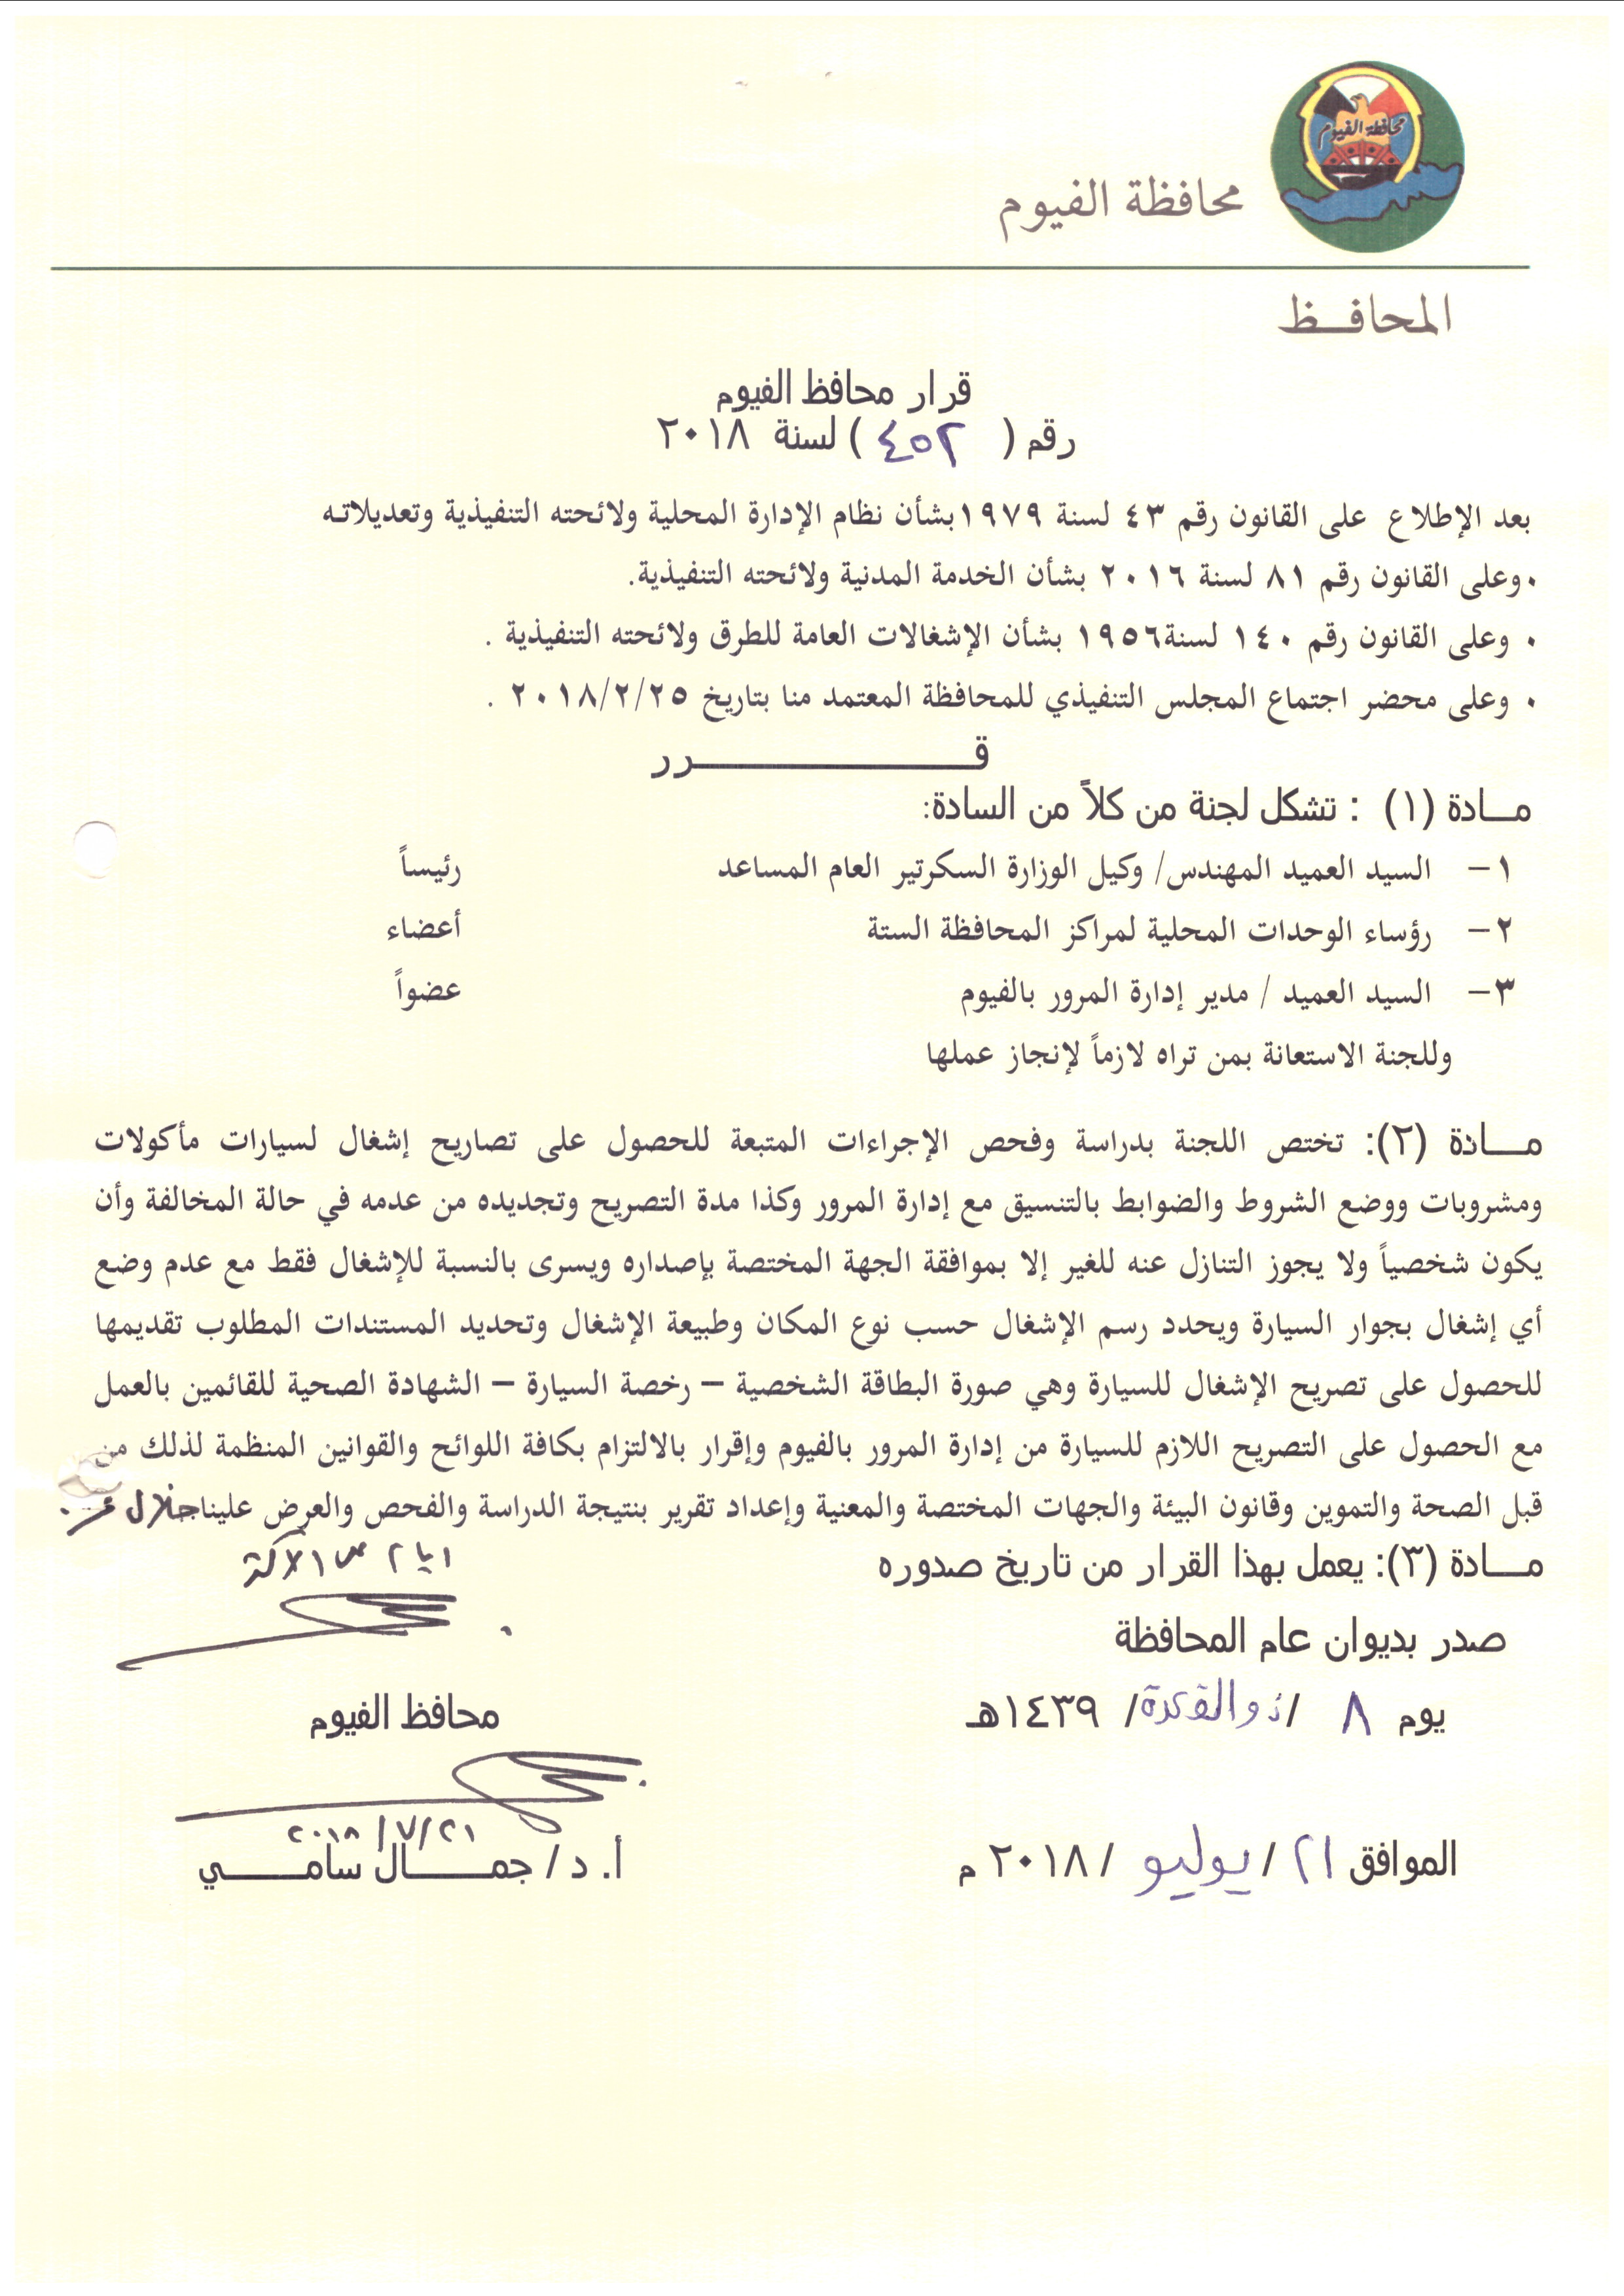 محافظة الفيوم
محافظة الفيوم
المحافــظ
قرار محافظ الفيوم
رقم ( ٤٥٢ ) لسنة ٢٠١٨
بعد الإطلاع على القانون رقم ٤٣ لسنة ١٩٧٩بشأن نظام الإدارة المحلية ولائحته التنفيذية وتعديلاته
• وعلى القانون رقم ٨١ لسنة ٢٠١٦ بشأن الخدمة المدنية ولائحته التنفيذية.
• وعلى القانون رقم ١٤٠ لسنة١٩٥٦ بشأن الإشغالات العامة للطرق ولائحته التنفيذية .
• وعلى محضر اجتماع المجلس التنفيذي للمحافظة المعتمد منا بتاريخ ٢٠١٨/٢/٢٥ .
قــــــــــــرر
مـــادة (١) : تشكل لجنة من كلاً من السادة:
١- السيد العميد المهندس/ وكيل الوزارة السكرتير العام المساعد رئيساً
٢- رؤساء الوحدات المحلية لمراكز المحافظة الستة أعضاء
٣- السيد العميد / مدير إدارة المرور بالفيوم عضواً
وللجنة الاستعانة بمن تراه لازماً لإنجاز عملها
مـــادة (٢): تختص اللجنة بدراسة وفحص الإجراءات المتبعة للحصول على تصاريح إشغال لسيارات مأكولات
ومشروبات ووضع الشروط والضوابط بالتنسيق مع إدارة المرور وكذا مدة التصريح وتجديده من عدمه في حالة المخالفة وأن
يكون شخصياً ولا يجوز التنازل عنه للغير إلا بموافقة الجهة المختصة بإصداره ويسرى بالنسبة للإشغال فقط مع عدم وضع
أي إشغال بجوار السيارة ويحدد رسم الإشغال حسب نوع المكان وطبيعة الإشغال وتحديد المستندات المطلوب تقديمها
للحصول على تصريح الإشغال للسيارة وهي صورة البطاقة الشخصية – رخصة السيارة – الشهادة الصحية للقائمين بالعمل
مع الحصول على التصريح اللازم للسيارة من إدارة المرور بالفيوم وإقرار بالالتزام بكافة اللوائح والقوانين المنظمة لذلك من
قبل الصحة والتموين وقانون البيئة والجهات المختصة والمعنية وإعداد تقرير بنتيجة الدراسة والفحص والعرض علينا خلال
مـــادة (٣): يعمل بهذا القرار من تاريخ صدوره
صدر بديوان عام المحافظة
يوم ٨ / ذو القعدة / ١٤٣٩هـ
محافظ الفيوم
٢٠١٨/٧/٢١
الموافق ٢١ / يوليو / ٢٠١٨ م
أ. د/ جمـــال سامـــي